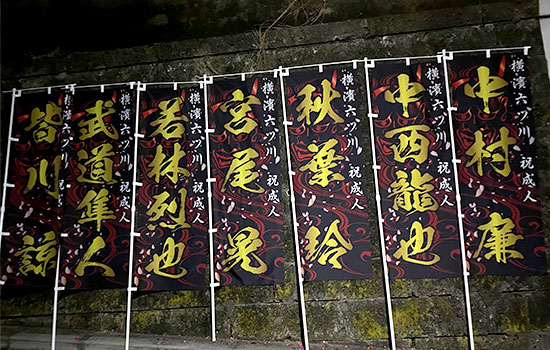 中村 廉
"横濱六ッ川" 祝成人
中西龍也
"横濱六ッ川" 祝成人
秋葉 玲
"横濱六ッ川" 祝成人
宮尾 晃
"横濱六ッ川" 祝成人
若林烈也
"横濱六ッ川" 祝成人
武道隼人
"横濱六ッ川" 祝成人
皆川 諒
"横濱六ッ川"